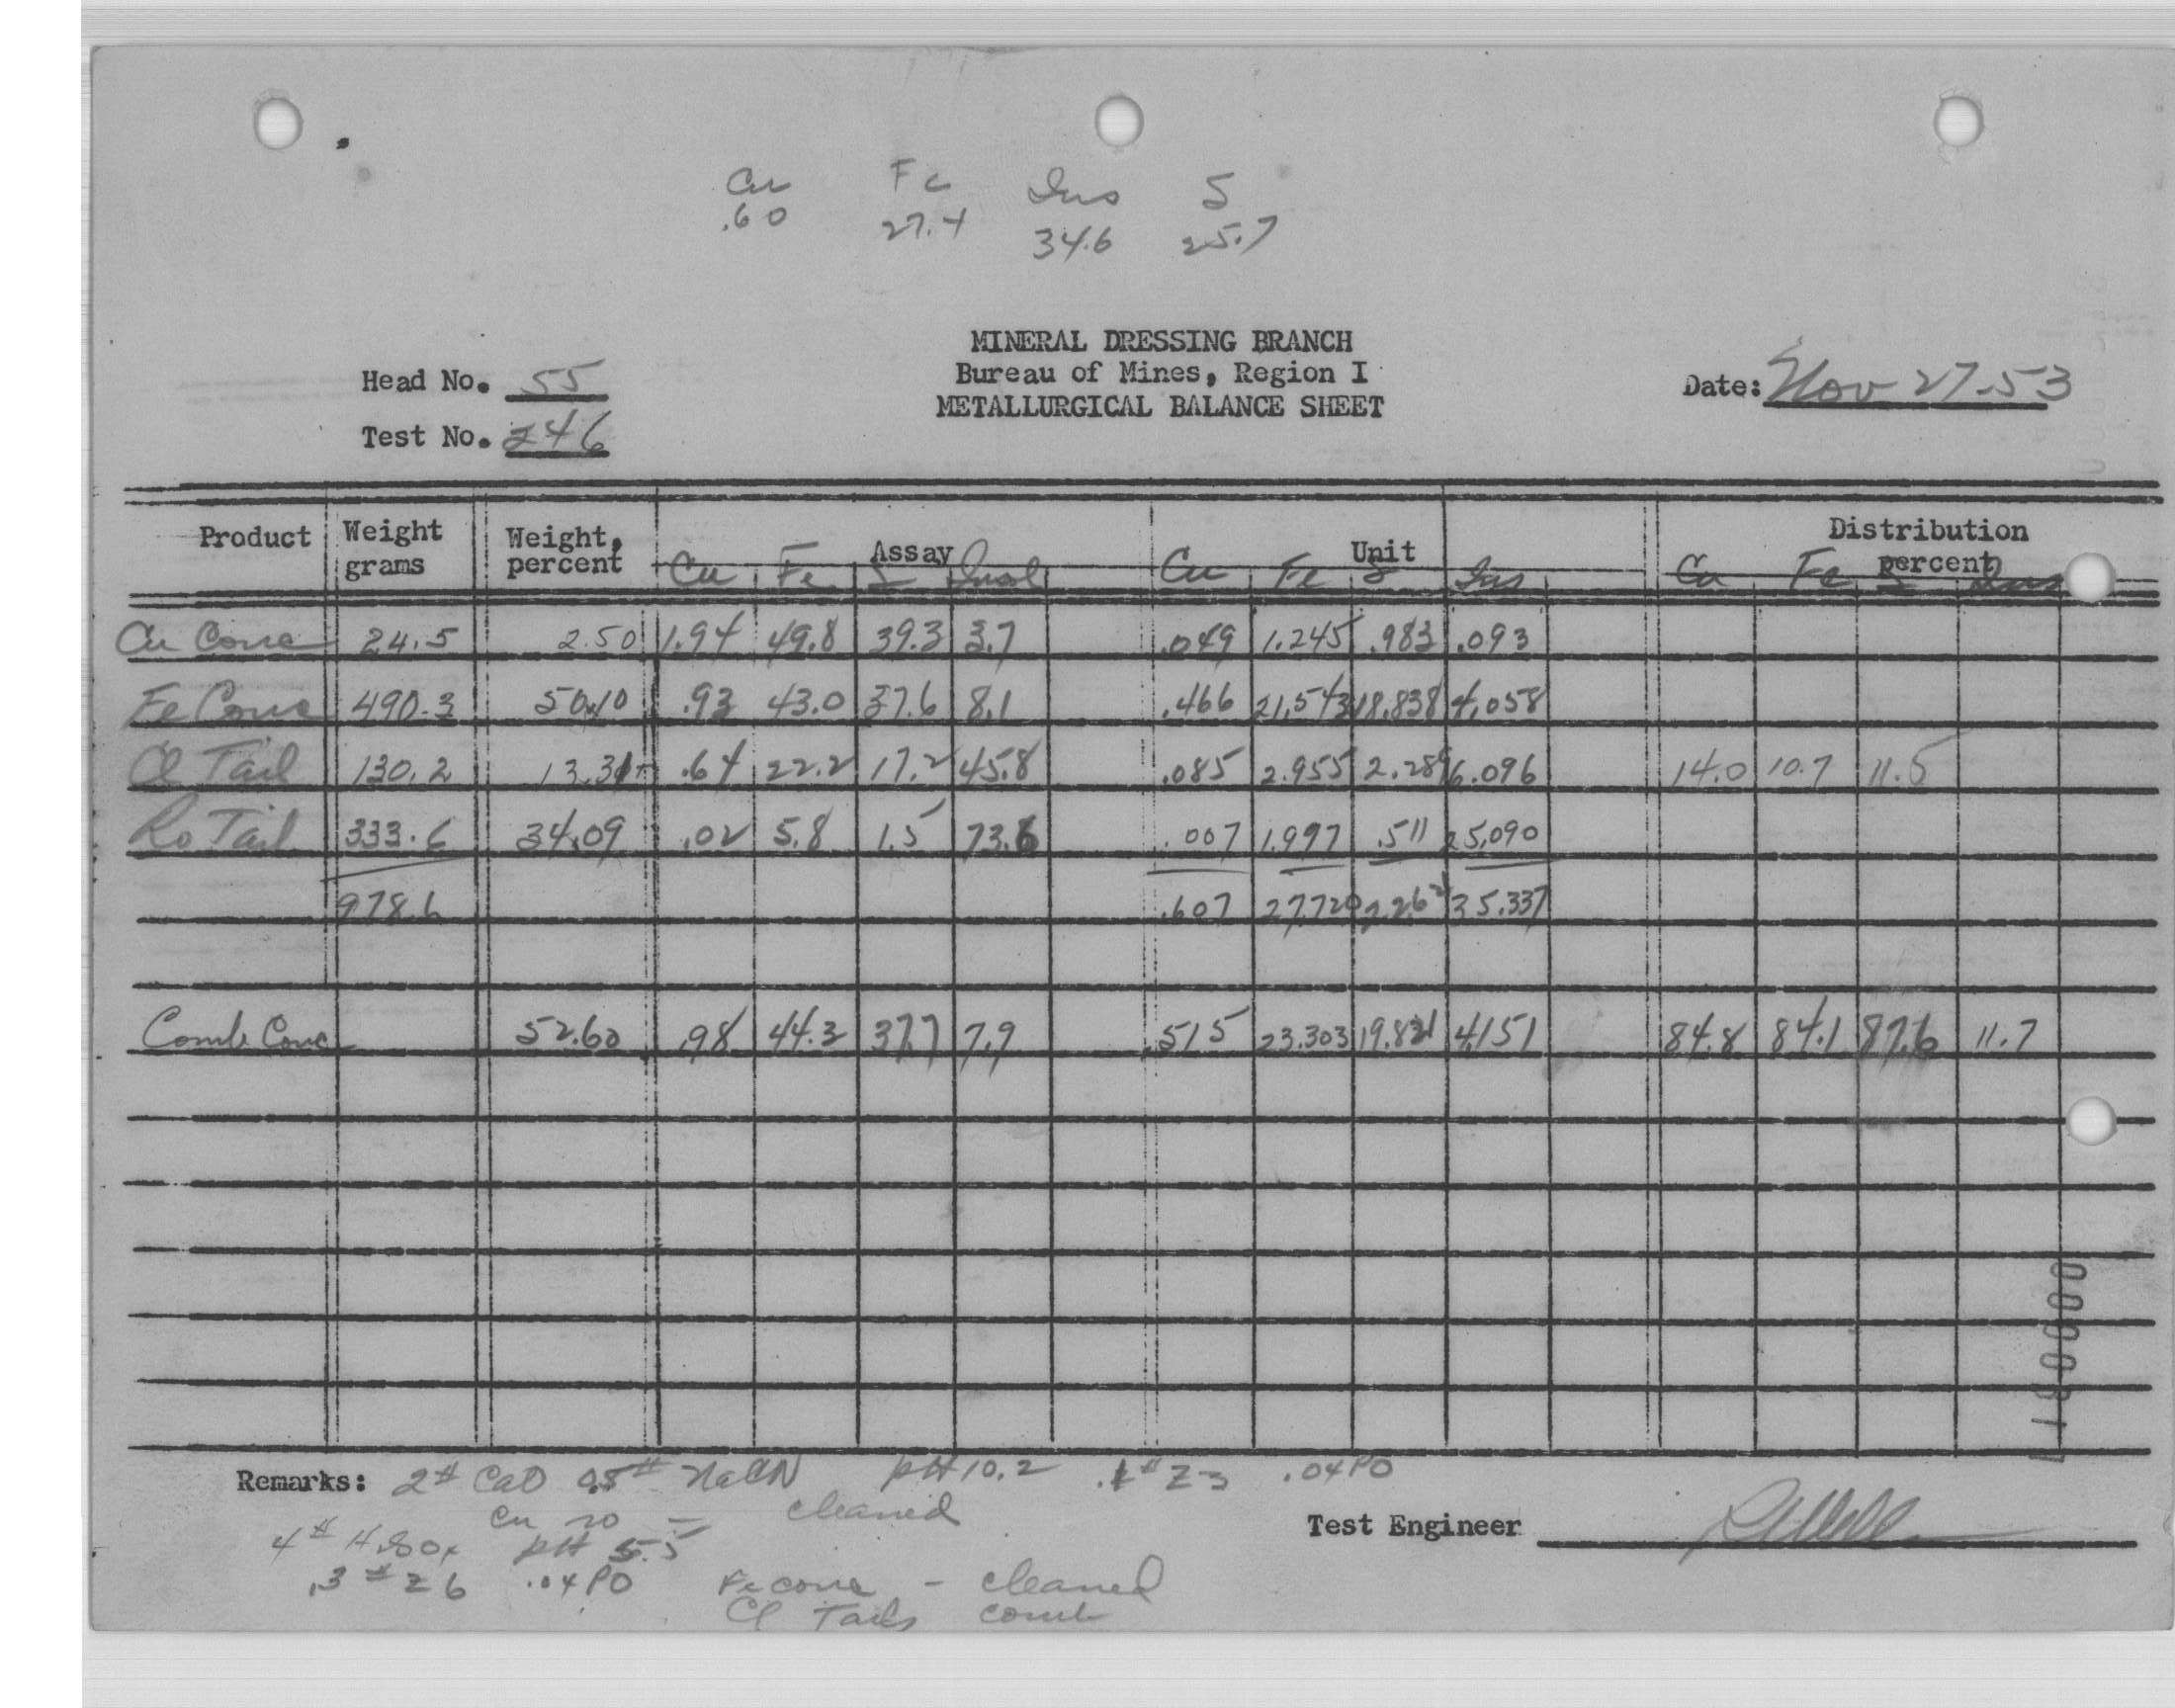 Cu Fe Ins S
.60 27.4 34.6 25.7
MINERAL DRESSING BRANCH
Bureau of Mines, Region I
METALLURGICAL BALANCE SHEET
Head No. 55
Test No. 246
Date: Nov 27-53
Product Weight grams Weight, percent Assay Unit Distribution percent
Cu Fe S Insol Cu Fe S Ins Cu Fe S Ins
Cu Conc 24.5 2.50 1.94 49.8 39.3 3.7 .049 1.245 .983 .093
Fe Conc 490.3 50.10 .93 43.0 37.6 8.1 .466 21.543 18.838 4.058
Cl Tail 130.2 13.31 .64 22.2 17.2 45.8 .085 2.955 2.289 6.096 14.0 10.7 11.5
Ro Tail 333.6 34.09 .02 5.8 1.5 73.6 .007 1.977 .511 25.090
978.6 .607 27.720 35.337
Comb Conc 52.60 .98 44.3 37.7 7.9 .515 23.303 19.821 4.151 84.8 84.1 87.6 11.7
Remarks: 2# CaO 0.5# NaCN pH 10.2 .1# Z3 .04 PO
Cu ro - cleaned
4# H2SO4 pH 5.5
.3# Z6 .04 PO Fe conc - cleaned
Cl Tails comb
Test Engineer